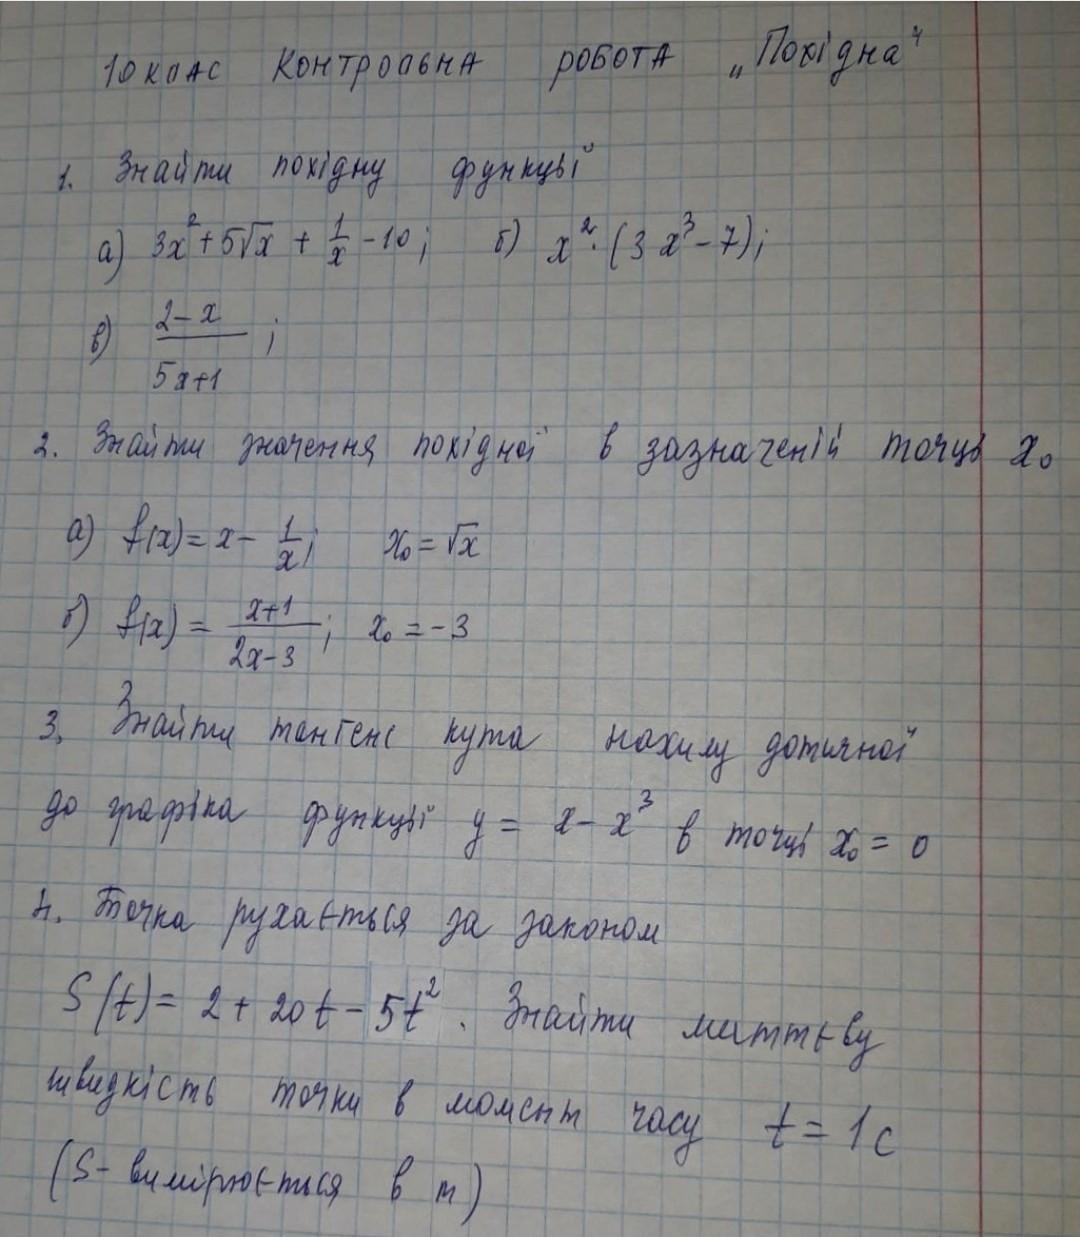 10 клас Контрольна робота „Похідна"
1. Знайти похідну функції
а) 3x² + 5√x + 1/x - 10; б) x² · (3x³ - 7);
в) (2 - x)/(5x + 1);
2. Знайти значення похідної в зазначеній точці x₀
а) f(x) = x - 1/x; x₀ = √x
б) f(x) = (x+1)/(2x-3); x₀ = -3
3. Знайти тангенс кута нахилу дотичної
до графіка функції y = x - x³ в точці x₀ = 0
4. Точка рухається за законом
S(t) = 2 + 20t - 5t². Знайти миттєву
швидкість точки в момент часу t = 1 с
(S - вимірюється в м)